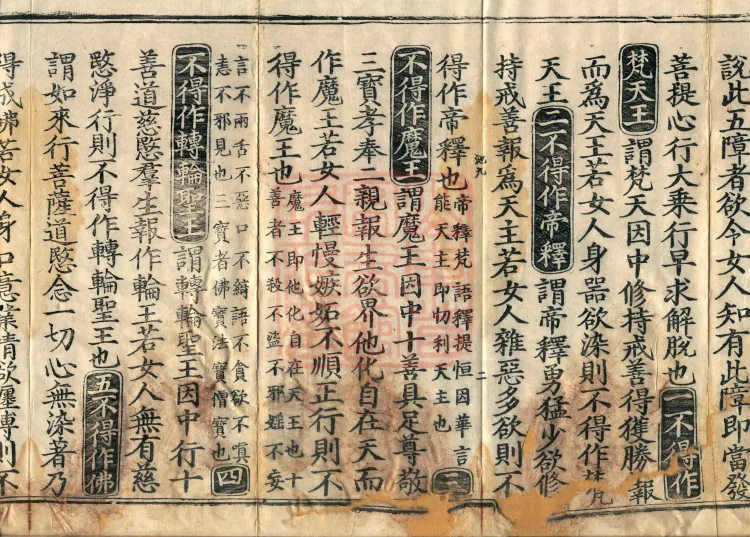 說此五障者欲令女人知有此障即當發
菩提心行大乘行早求解脫也一不得作
梵天王謂梵天因中修持戒善得獲勝報
而爲天王若女人身器欲染則不得作梵
天王二不得作帝釋謂帝釋勇猛少欲修
持戒善報爲天主若女人雜惡多欲則不
池九
二
得作帝釋也帝釋梵語釋提恒因華言
能天主即忉利天主也三
不得作魔王謂魔王因中十善具足尊敬
三寶孝奉二親報生欲界他化自在天而
作魔王若女人輕慢嫉妬不順正行則不
得作魔王也魔王即他化自在天王也十
善者不殺不盜不邪婬不妄
言不兩舌不惡口不綺語不貪欲不嗔
恚不邪見也三寶者佛寶法寶僧寶也四
不得作轉輪聖王謂轉輪聖王因中行十
善道慈愍羣生報作輪王若女人無有慈
愍淨行則不得作轉輪聖王也五不得作佛
謂如來行菩薩道愍念一切心無染著乃
得成佛若女人身口意業情欲纏縛則不